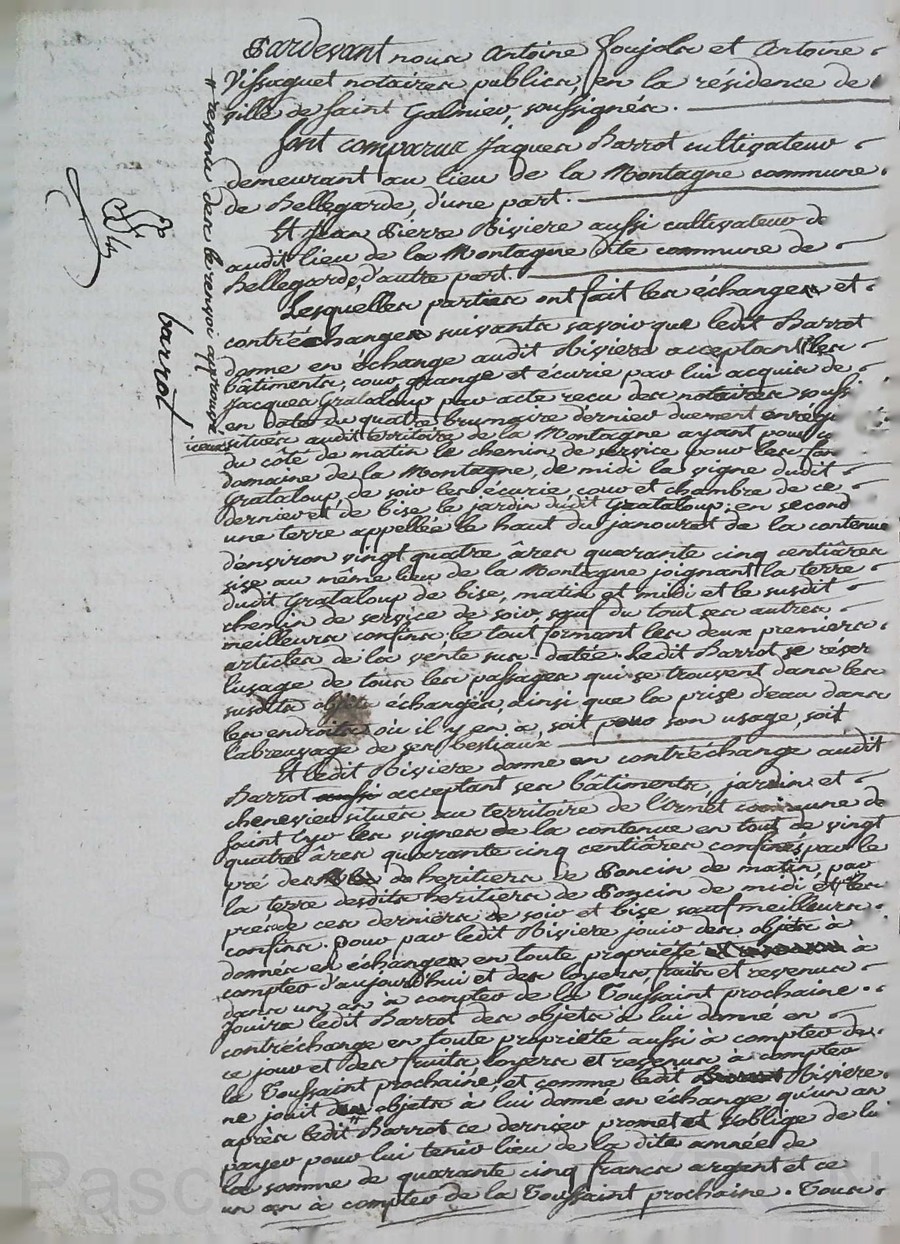 Pardevant nous Antoine Foujols et Antoine
Vissaguet notaires publics, en la résidence de
ville de saint Galmier, soussignés.
Sont comparus Jaques Barrot cultivateur
demeurant au lieu de la Montagne commune
de Bellegarde, d'une part.
Et Jean Pierre Riviere aussi cultivateur de
audit lieu de la Montagne dite commune de
Bellegarde, d'autre part.
Lesquelles parties ont fait les échanges et
contréchanges suivants savoir que ledit Barrot
donne en échange audit Riviere acceptant les
bâtiments, cour, grange et écurie par lui acquis de
Jacques Grataloup par acte recu des notaires soussi
en date du quatre brumaire dernier duement enrég
situés audit territoire de la Montagne ayant pour
du côté de matin le chemin de service pour les
domaine de la Montagne, de midi la vigne dudit
Grataloup, de soir les écurie, cour et chambre de ce
dernier et de bise le jardin dudit Grataloup; en second
une terre appellée le haut du janouret de la contenue
d'environ vingt quatre âres quarante cinq centiâres
sise au même lieu de la Montagne joignant la terre
dudit Grataloup de bise, matin et midi et le susdit
chemin de service de soir, sauf du tout ses autres
meilleurs confins; le tout formant les deux premiers
articles de la vente sus datée. Ledit Barrot se réser
l'usage de tous les passages qui se trouvent dans les
susdits objets échangés, ainsi que la prise d'eau dans
les endroits où il y en a, soit pour son usage, soit
l'abreuvage de ses bestiaux.
Et ledit Riviere donne en contréchange audit
Barrot acceptant ses bâtiments, jardin et
chenevier situés au territoire de l'ormet commune de
saint Cyr les vignes de la contenue en tout de vingt
quatre âres quarante cinq centiâres confinés par le
pré des heritiers de Poncin de matin, par
la terre desdits heritiers de Poncin de midi et les
prés de ces derniers de soir et bise, sauf meilleurs
confins. Pour par ledit Riviere jouir des objets à
donnés en échange en toute propriété à
compter d'aujourd'hui et des loyers fruits et revenus
dans un an à compter de la Toussaint prochaine.
Jouira ledit Barrot des objets à lui donné en
contréchange en toute propriété aussi à compter de
ce jour et des fruits loyers et revenus à compter
la Toussaint prochaine, et comme ledit Riviere
ne jouit des objets à lui donné en échange qu'un an
après ledit Barrot ce dernier promet et s'oblige de lui
payer pour lui tenir lieu de la dite année de
la somme de quarante cinq francs argent et ce
un an à compter de la Toussaint prochaine. Tous
# revenu des le renvoi approuvé
barrot